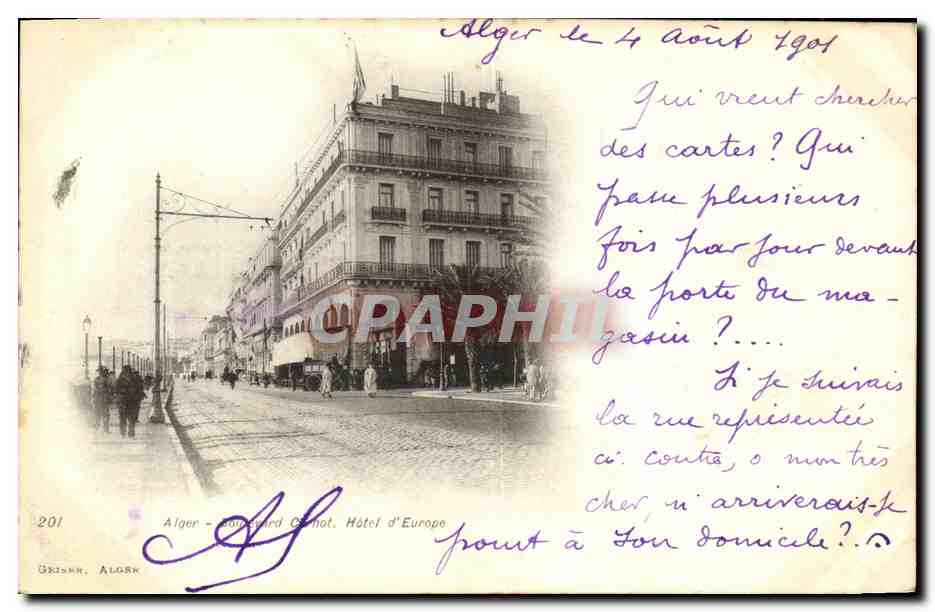 Alger le 4 Août 1901
Qui vient chercher
des cartes? Qui
passe plusieurs
fois par jour devant
la porte du ma-
gasin?.....
Si je suivais
la rue représentée
ci. contre, o mon très
cher, n'arriverais-je
point à son domicile?..
CARTE PHIL
201
Alger - Boulevard Carnot, Hôtel d'Europe
GEISER, ALGER